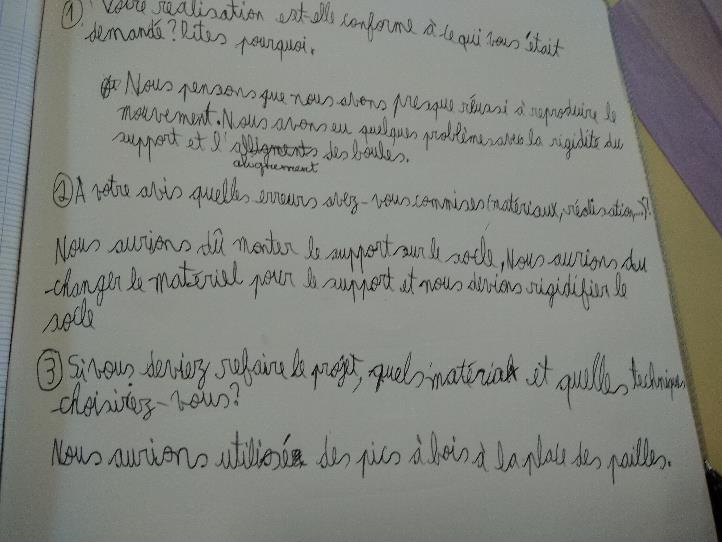 ① Votre réalisation est-elle conforme à ce qui vous était
demandé? Dites pourquoi.
Nous pensons que nous avons presque réussi à reproduire le
mouvement. Nous avons eu quelques problèmes avec la rigidité du
support et l'alligments des boules.
alignement
② A votre avis quelles erreurs avez-vous commises (matériaux, réalisation,...)?
Nous aurions dû monter le support sur le socle, Nous aurions du
changer le matériel pour le support et nous devions rigidifier le
socle
③ Si vous deviez refaire le projet, quels matériax et quelles techniques
choisirez-vous?
Nous aurions utilisée des pics à bois à la place des pailles.